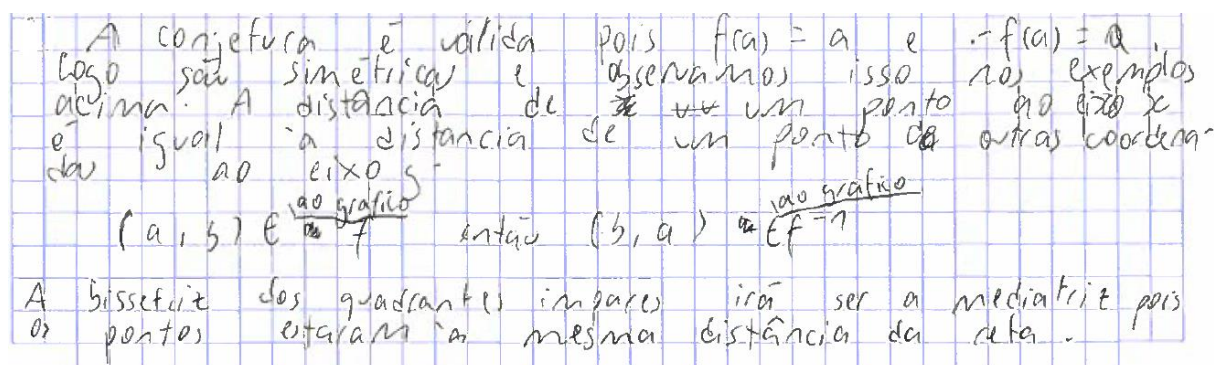 A conjetura é válida pois f(a) = a e -f(a) = a.
Logo são simétricas e observamos isso nos exemplos
acima. A distância de um ponto ao eixo x
é igual à distancia de um ponto de outras coordena-
das ao eixo y
ao gráfico ao gráfico
(a, b) ∈ f então (b, a) ∈ f⁻¹
A bissetriz dos quadrantes ímpares irá ser a mediatriz pois
os pontos estaram à mesma distância da reta.